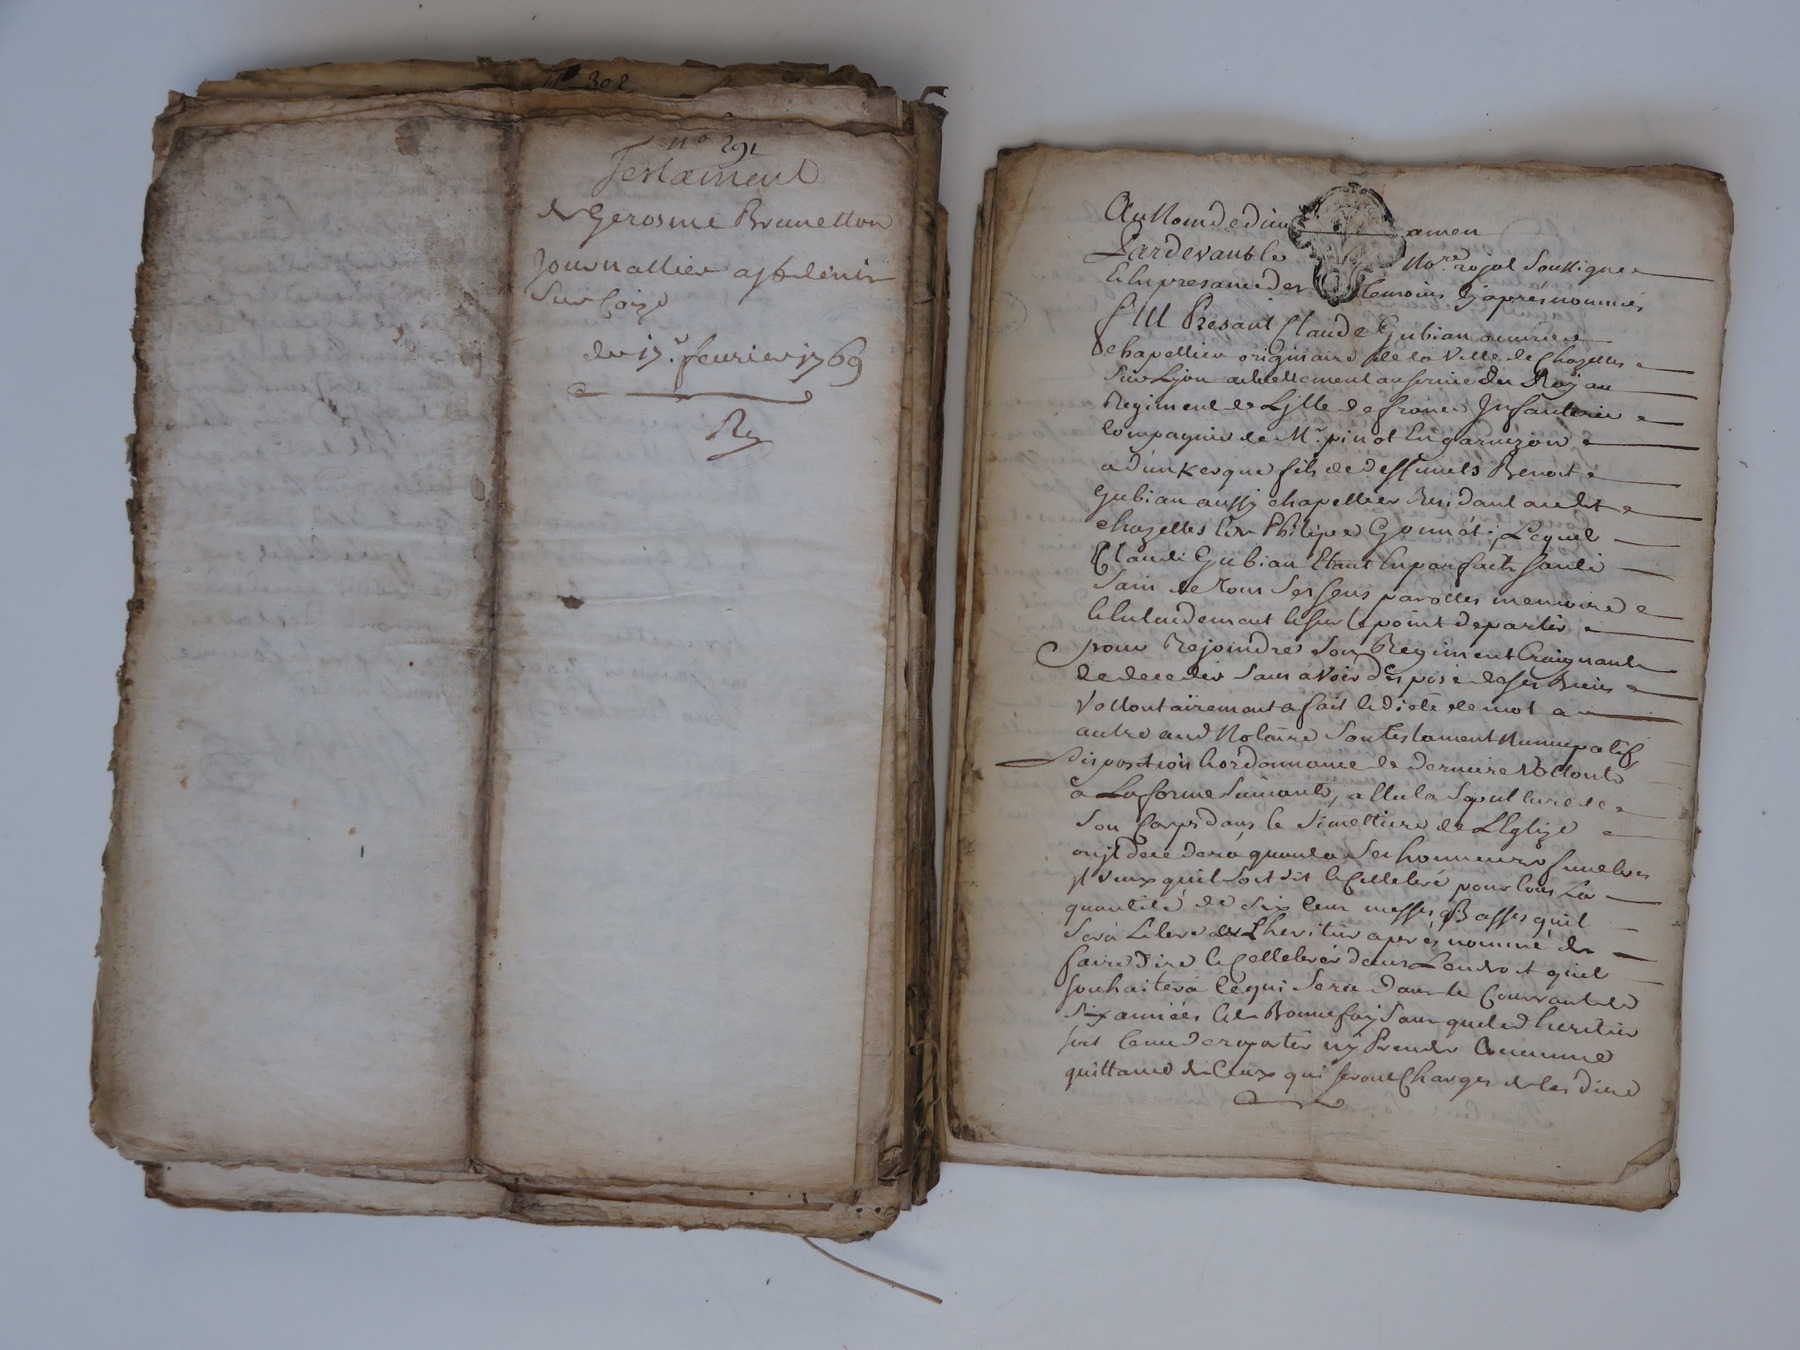 N° 302
N° 291
Testament
de Gerosme Brunetton
Journallier a St denis
Sur Coize
du 17.e feurier 1769
Ry
Au Nom de dieu amen
Pardevant le No.re royal Soussigné
Et En presance des temoins cy aprés nommés
fut Present Claude Gubian ouurier
chapellier originaire de la Ville de Chazelles
Sur Lyon actuellement au seruice du Roy au
Regiment de Lille de france Infanterie
Compagnie de Mr. pinot En garnizon
a dunkerque fils de deffunts Benoit
Gubian aussy chapellier Residant audit
chazelles Et de Philipe Gonnét; Lequel
Claude Gubian Etant En parfaite santé
Sain de tous Ses sens parolles memoire
Et Entandement Et sur le point de partir
pour Rejoindre Son Regiment Craignant
de deceder Sans avoir disposé de ses Biens
Vollontairement a fait Et dicté de mot a
autre aud Notaire Son testament Nuncupatif
disposition Et ordonnance de derniere Vollonté
a La forme Suiuante, a Elu la Sepulture de
Son Corps dans le Simettiere de L'Eglize
ou jl decedera quant a Ses honneurs funebres
jl veux quil Soit dit Et Cellebré pour tous La
quantité de six Cent messes Basses quil
Sera Libre a L'heritier aprés nommé de
faire dire Et Cellebrér dans Lendroit quil
souhaitera Ce qui Sera dans le Courrant de
Six années Et de Bonne foy Sans que led heritier
soit tenu de raporter ny Prendre Aucunne
quittance de Ceux qui seront Charges de les dire